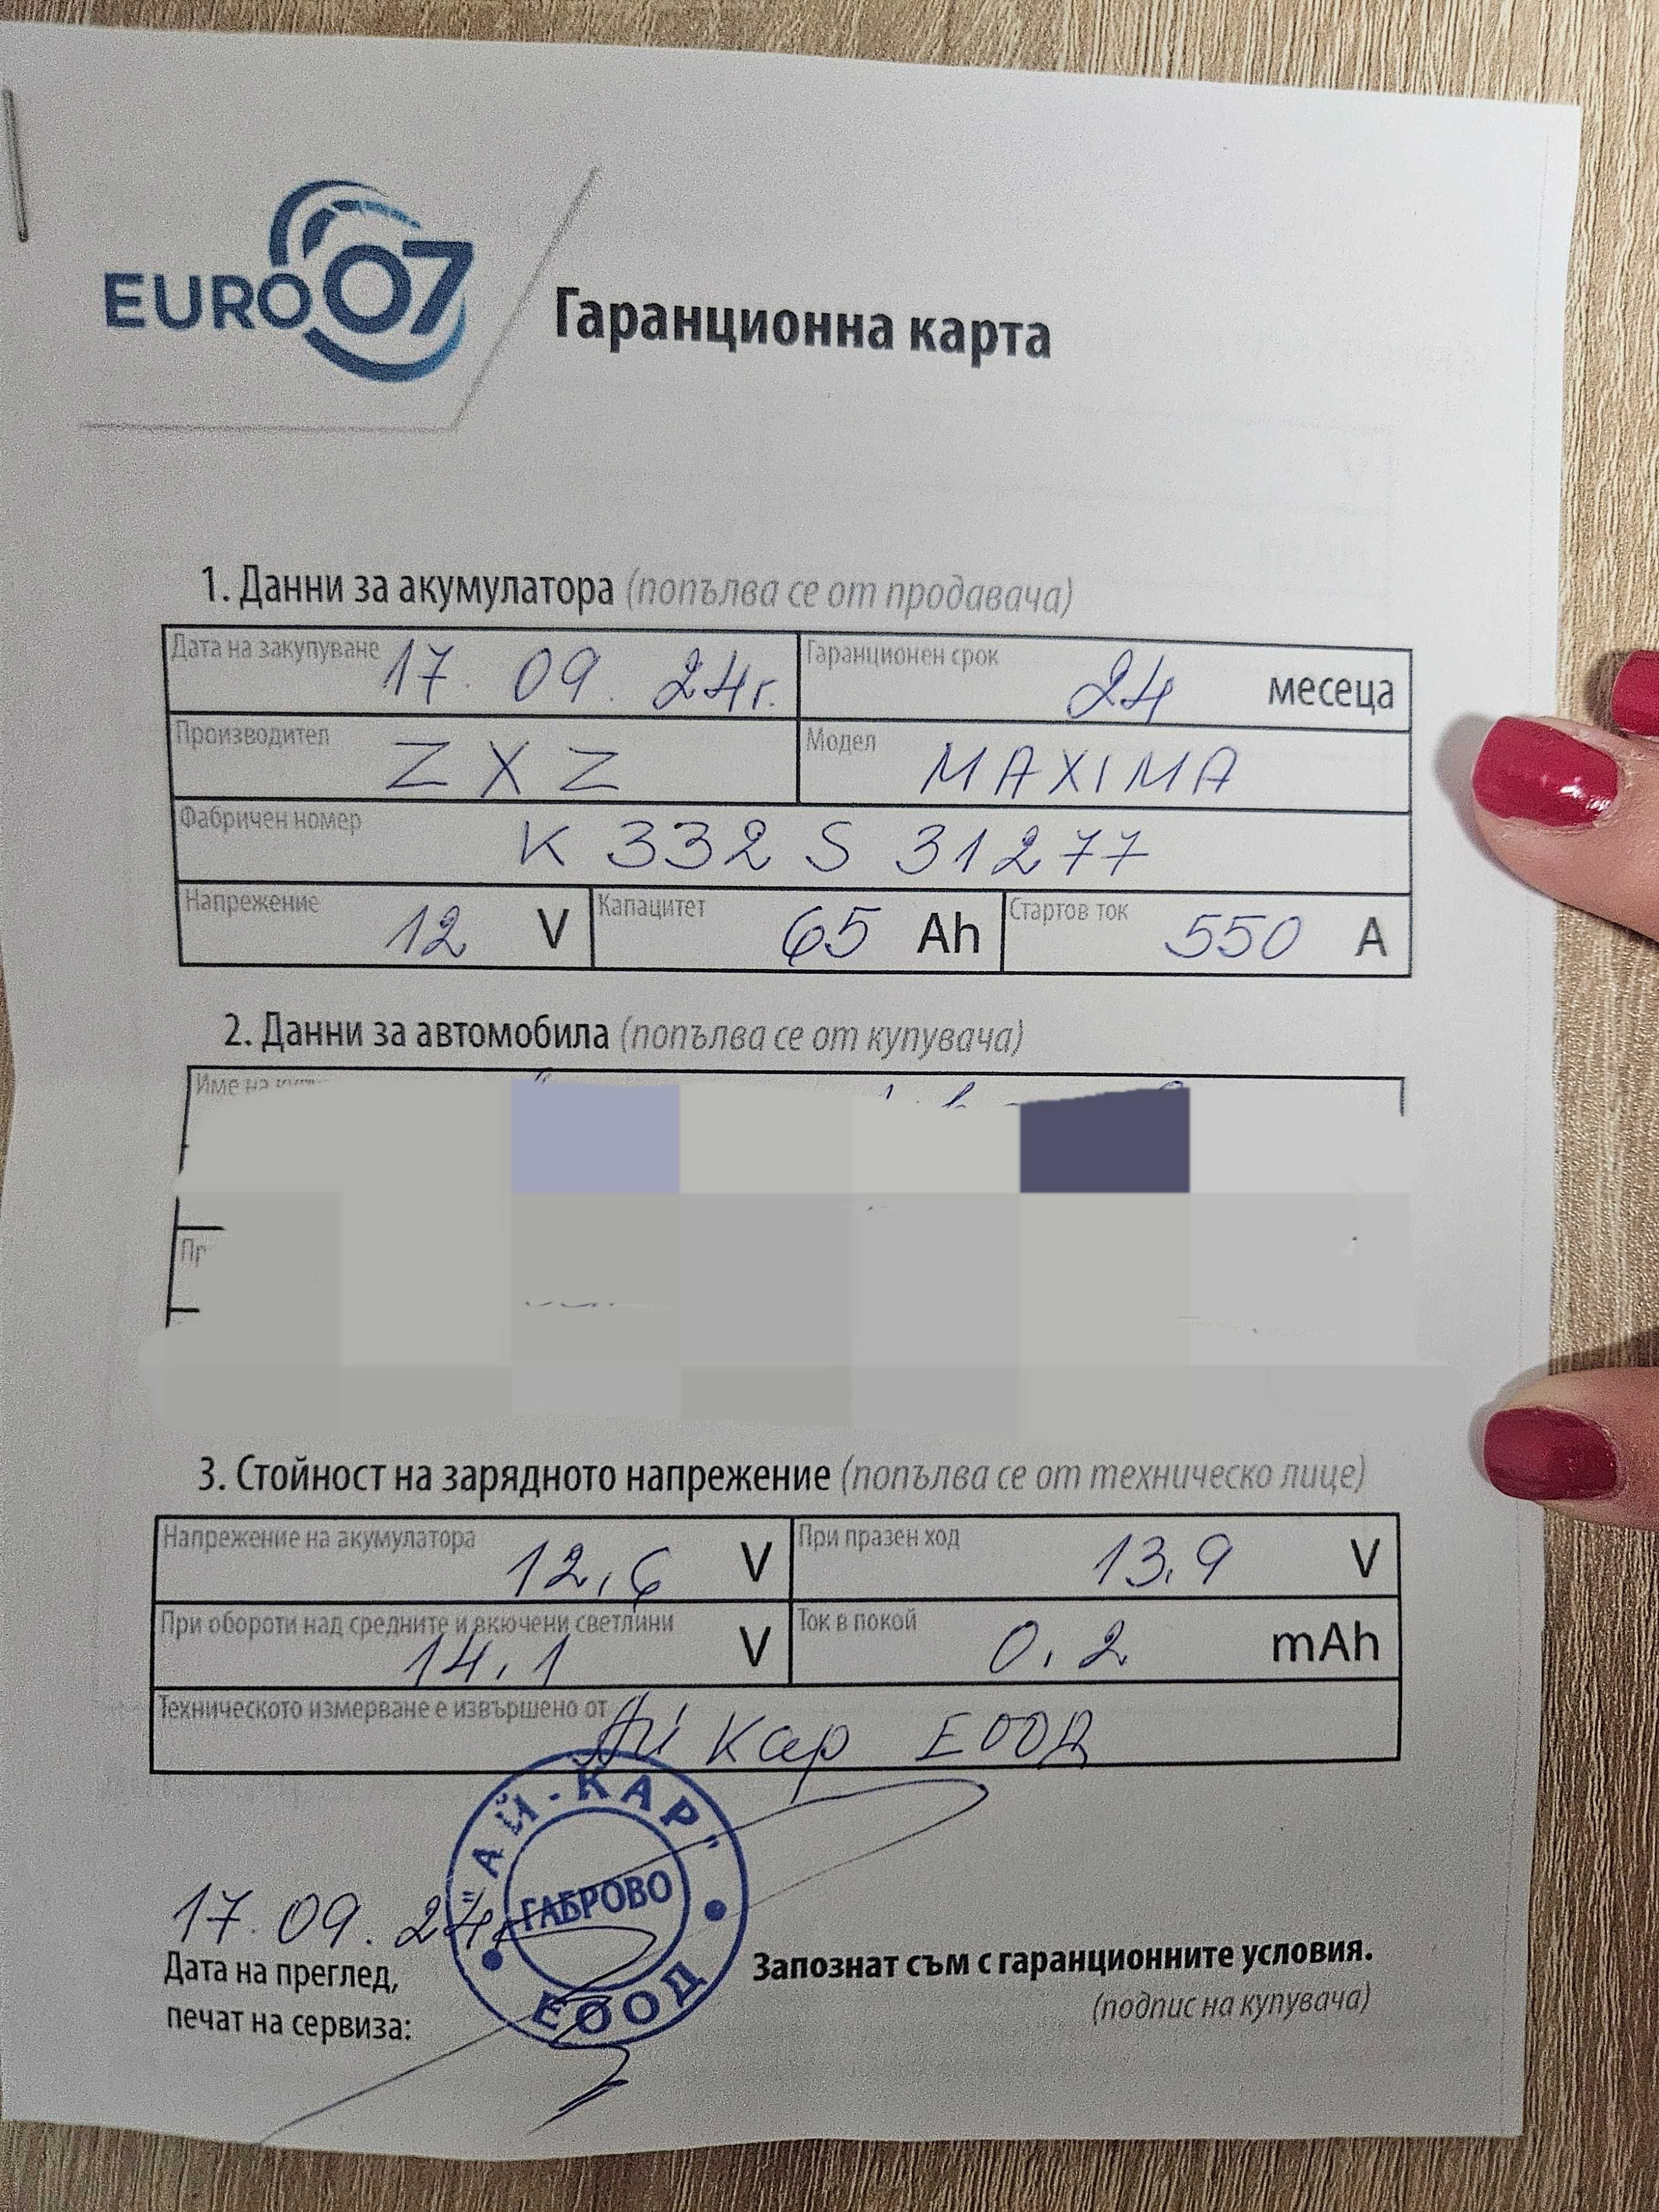 EURO07
Гаранционна карта
1. Данни за акумулатора (попълва се от продавача)
Дата на закупуване 17. 09. 24г. Гаранционен срок 24 месеца
Производител ZXZ Модел MAXIMA
Фабричен номер K 332 S 31277
Напрежение 12 V Капацитет 65 Ah Стартов ток 550 A
2. Данни за автомобила (попълва се от купувача)
Име на
3. Стойност на зарядното напрежение (попълва се от техническо лице)
Напрежение на акумулатора 12,6 V При празен ход 13,9 V
При обороти над средните и вкючени светлини 14,1 V Ток в покой 0,2 mAh
Техническото измерване е извършено от Ай Кар ЕООД
"АЙ-КАР"
ГАБРОВО
ЕООД
17.09.24г.
Дата на преглед,
печат на сервиза:
Запознат съм с гаранционните условия.
(подпис на купувача)